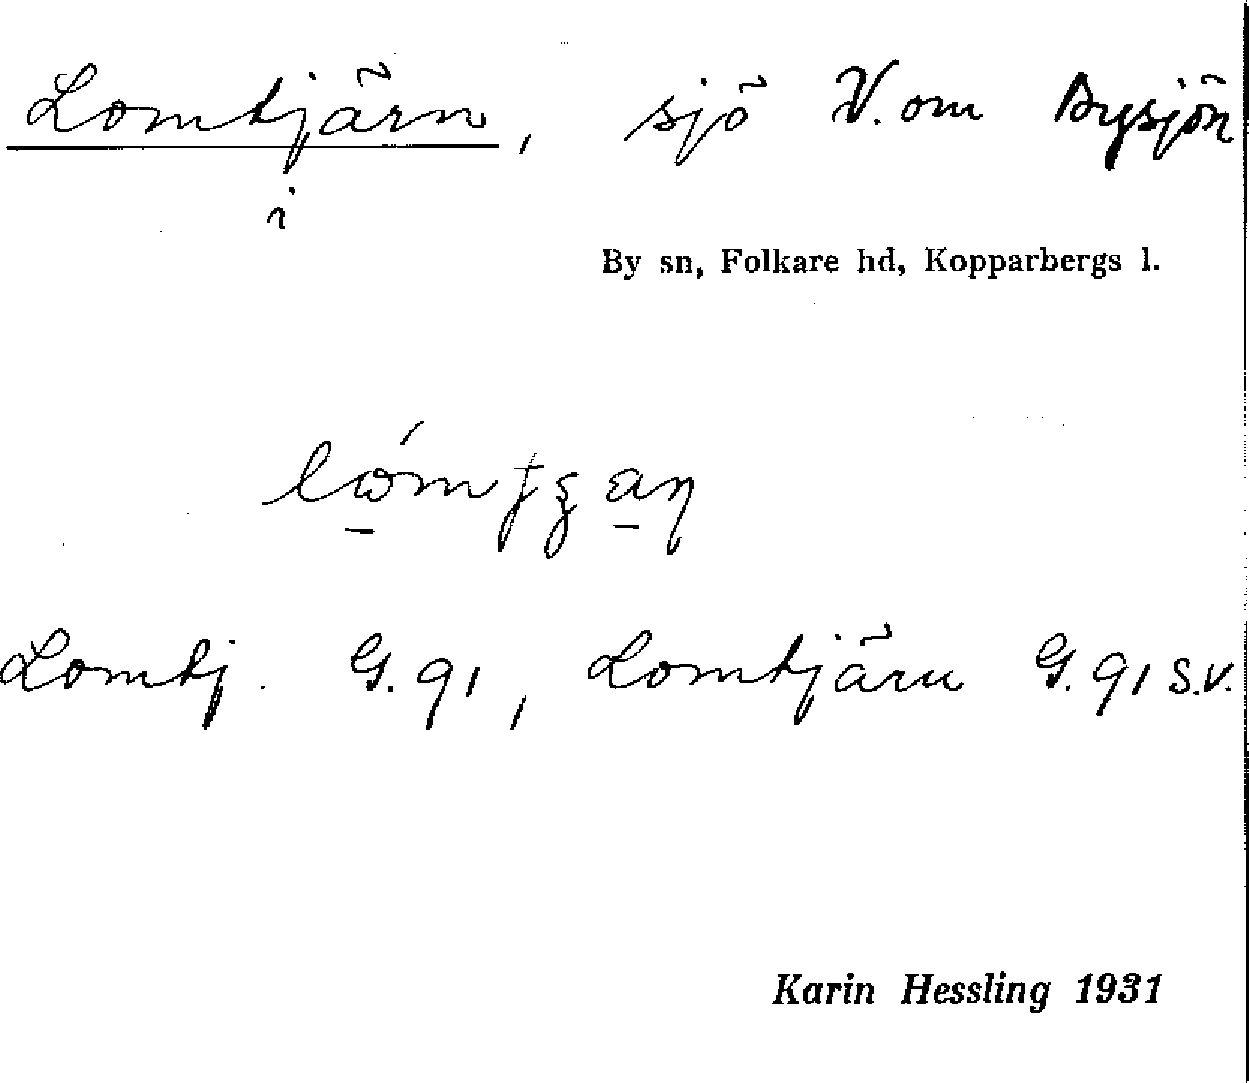 Lomtjärn, sjö V. om Bysjön
i
By sn, Folkare hd, Kopparbergs l.
Lomtj. G. 91, Lomtjärn G. 91 S.V.
Karin Hessling 1931